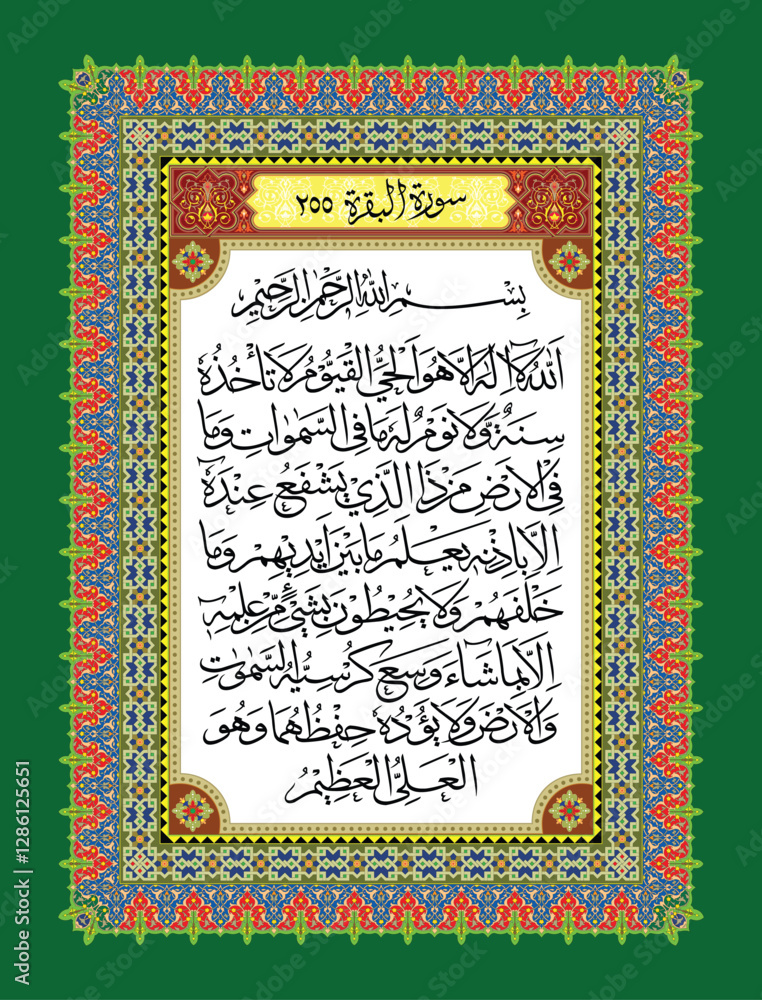 سورة البقرة ٢٥٥
بِسْمِ اللهِ الرَّحْمٰنِ الرَّحِيْمِ
اَللهُ لَآ اِلٰهَ اِلَّا هُوَ اَلْحَيُّ الْقَيُّوْمُ لَا تَأْخُذُهٗ
سِنَةٌ وَّلَا نَوْمٌ لَهٗ مَا فِي السَّمٰوٰتِ وَمَا
فِي الْاَرْضِ مَنْ ذَا الَّذِيْ يَشْفَعُ عِنْدَهٗٓ
اِلَّا بِاِذْنِهٖ يَعْلَمُ مَا بَيْنَ اَيْدِيْهِمْ وَمَا
خَلْفَهُمْ وَلَا يُحِيْطُوْنَ بِشَيْءٍ مِّنْ عِلْمِهٖٓ
اِلَّا بِمَا شَآءَ وَسِعَ كُرْسِيُّهُ السَّمٰوٰتِ
وَالْاَرْضَ وَلَا يَؤُدُهٗ حِفْظُهُمَا وَهُوَ
الْعَلِيُّ الْعَظِيْمُ
Adobe Stock | #1286125651